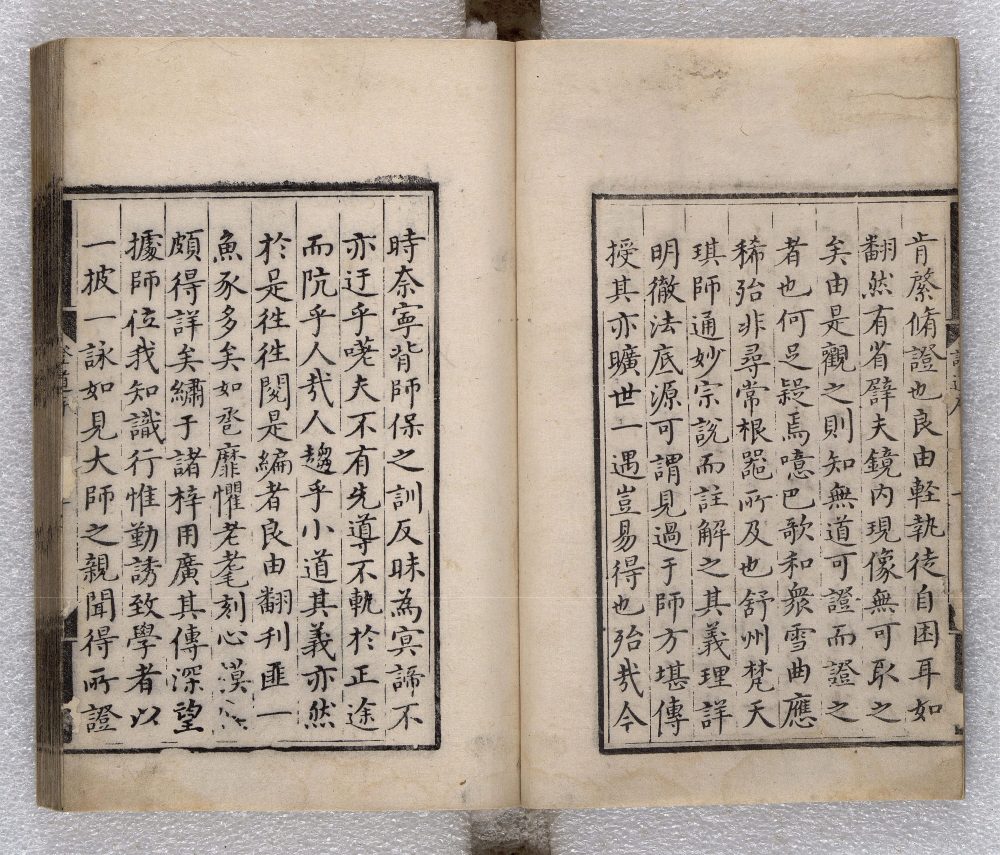 肯綮脩證也良由軽執徒自困耳如
翻然有省譬夫鏡内現像無可取之
矣由是觀之則知無道可證而證之
者也何足疑焉噫巴歌和衆雪曲應
稀殆非尋常根器所及也舒州梵天
琪師通妙宗説而註解之其義理詳
明徹法底源可謂見過于師方堪傳
授其亦曠世一遇豈易得也殆哉今
時奈寧背師保之訓反昧為冥諦不
亦迂乎嗟夫不有先導不軌於正途
而阬乎人哉人趨乎小道其義亦然
於是徃徃閲是編者良由翻刋匪一
魚豕多矣如卺靡懼老耄刻心漠
頗得詳矣繡于諸梓用廣其傳深望
據師位我知識行惟勤誘致學者以
一披一詠如見大師之親聞得所證
證道序